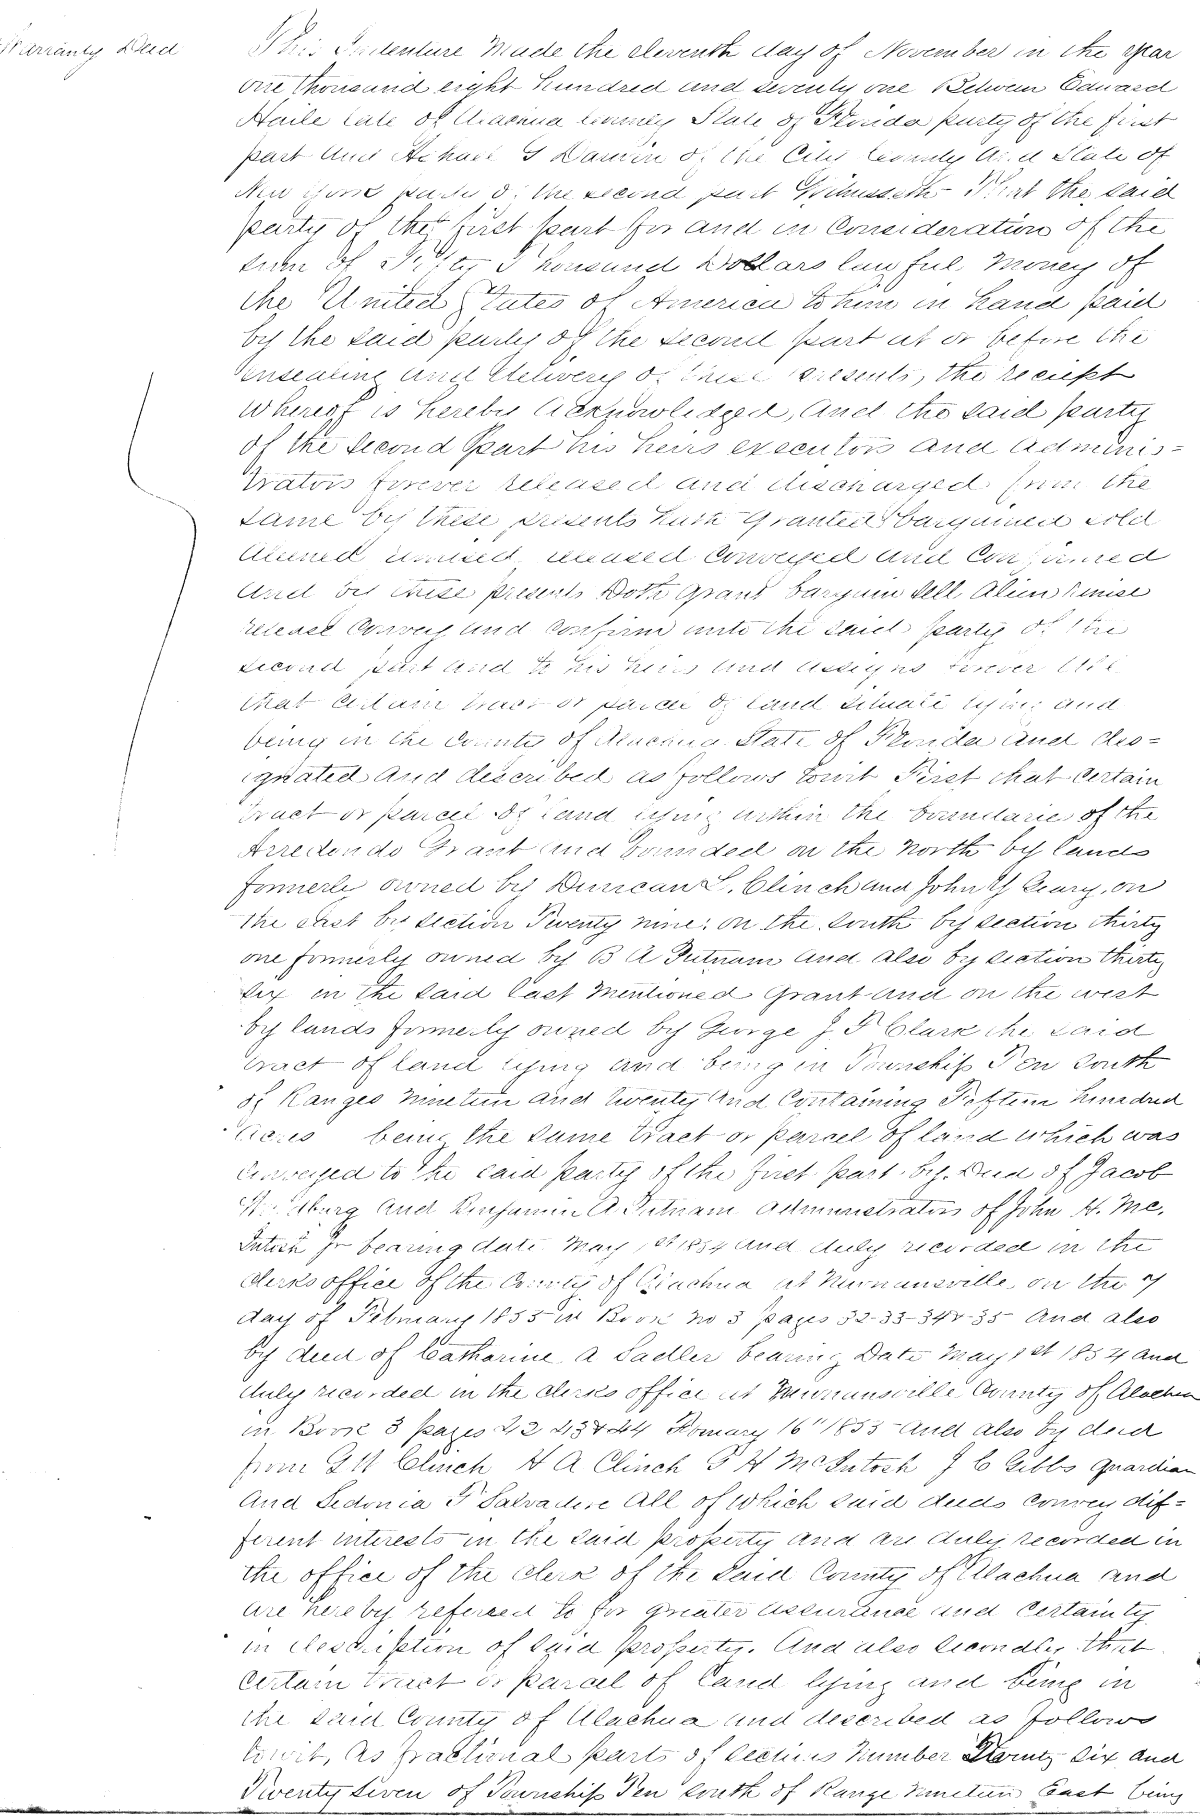 Warranty Deed
This Indenture Made the eleventh day of November in the year
one thousand eight hundred and seventy one Between Edward
Haile late of Alachua County State of Florida party of the first
part And of the City County And State of
New York party of the second part Witnesseth That the said
party of the first part for and in Consideration of the
sum of Fifty Thousand Dollars lawful Money of
the United States of America to him in hand paid
by the said party of the second part at or before the
ensealing and delivery of these presents, the reciept
whereof is hereby Acknowledged, And the said party
of the second part his heirs executors and Adminis=
trators forever released and discharged from the
same by these presents hath granted bargained sold
aliened remised released Conveyed and Confirmed
And by these presents Doth grant bargain sell Alien remise
release Convey and Confirm unto the said party of the
second part and to his heirs and assigns forever All
that certain tract or parcel of land situate lying and
being in the County of Alachua State of Florida and des=
ignated And described as follows towit First that certain
tract or parcel of land lying within the boundaries of the
Arredondo Grant and bounded on the North by lands
formerly owned by Duncan L. Clinch and John Geary, on
the east by section Twenty nine; on the south by section thirty
one formerly owned by B A Putnam and also by section thirty
six in the said last mentioned grant and on the west
by lands formerly owned by George J. F Clark the said
tract of land lying and being in Township Ten South
of Ranges nineteen and twenty And Containing Fifteen hundred
Acres being the same tract or parcel of land which was
Conveyed to the said party of the first part by Deed of Jacob
and Benjamin A Putnam administrators of John H. Mc.
Intosh Jr bearing date May 1st 1854 and duly recorded in the
clerks office of the County of Alachua at Newnansville on the 7
day of February 1855 in Book No 3 pages 32-33-34&35 and also
by deed of Catharine A Sadler bearing Date May 1st 1854 and
duly recorded in the clerks office at Newnansville County of Alachua
in Book 3 pages 42 43&44 16th 1855 and also by deed
from Clinch H A Clinch McIntosh J C Gibbs guardian
and All of which said deeds convey dif=
ferent interests in the said property and are duly recorded in
the office of the clerk of the said County of Alachua and
are hereby referred to for greater assurance and certainty
in description of said property. And also secondly that
certain tract or parcel of land lying and being in
the said County of Alachua and described as follows
towit, As fractional parts of sections number Twenty six and
Twenty seven of Township Ten south of Range Nineteen East being